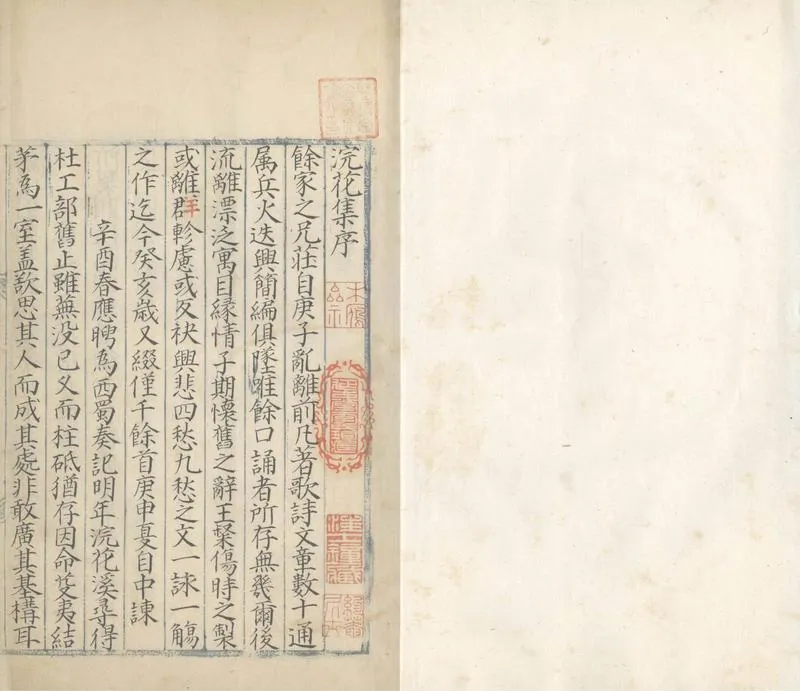 浣花集序
餘家之兄莊自庚子亂離前凡著歌詩文章數十通
属兵火迭興簡編俱墜唯餘口誦者所存無幾爾後
流離漂泛寓目緣情子期懷舊之辭王粲傷時之製
或離群軫慮或反袂興悲四愁九愁之文一詠一觴
之作迄今癸亥歲又綴僅千餘首庚申夏自中諫
辛酉春應聘為西蜀奏記明年浣花溪尋得
杜工部舊止雖蕪没已久而柱砥猶存因命芟夷結
茅為一室盖欲思其人而成其處非敢廣其基構耳